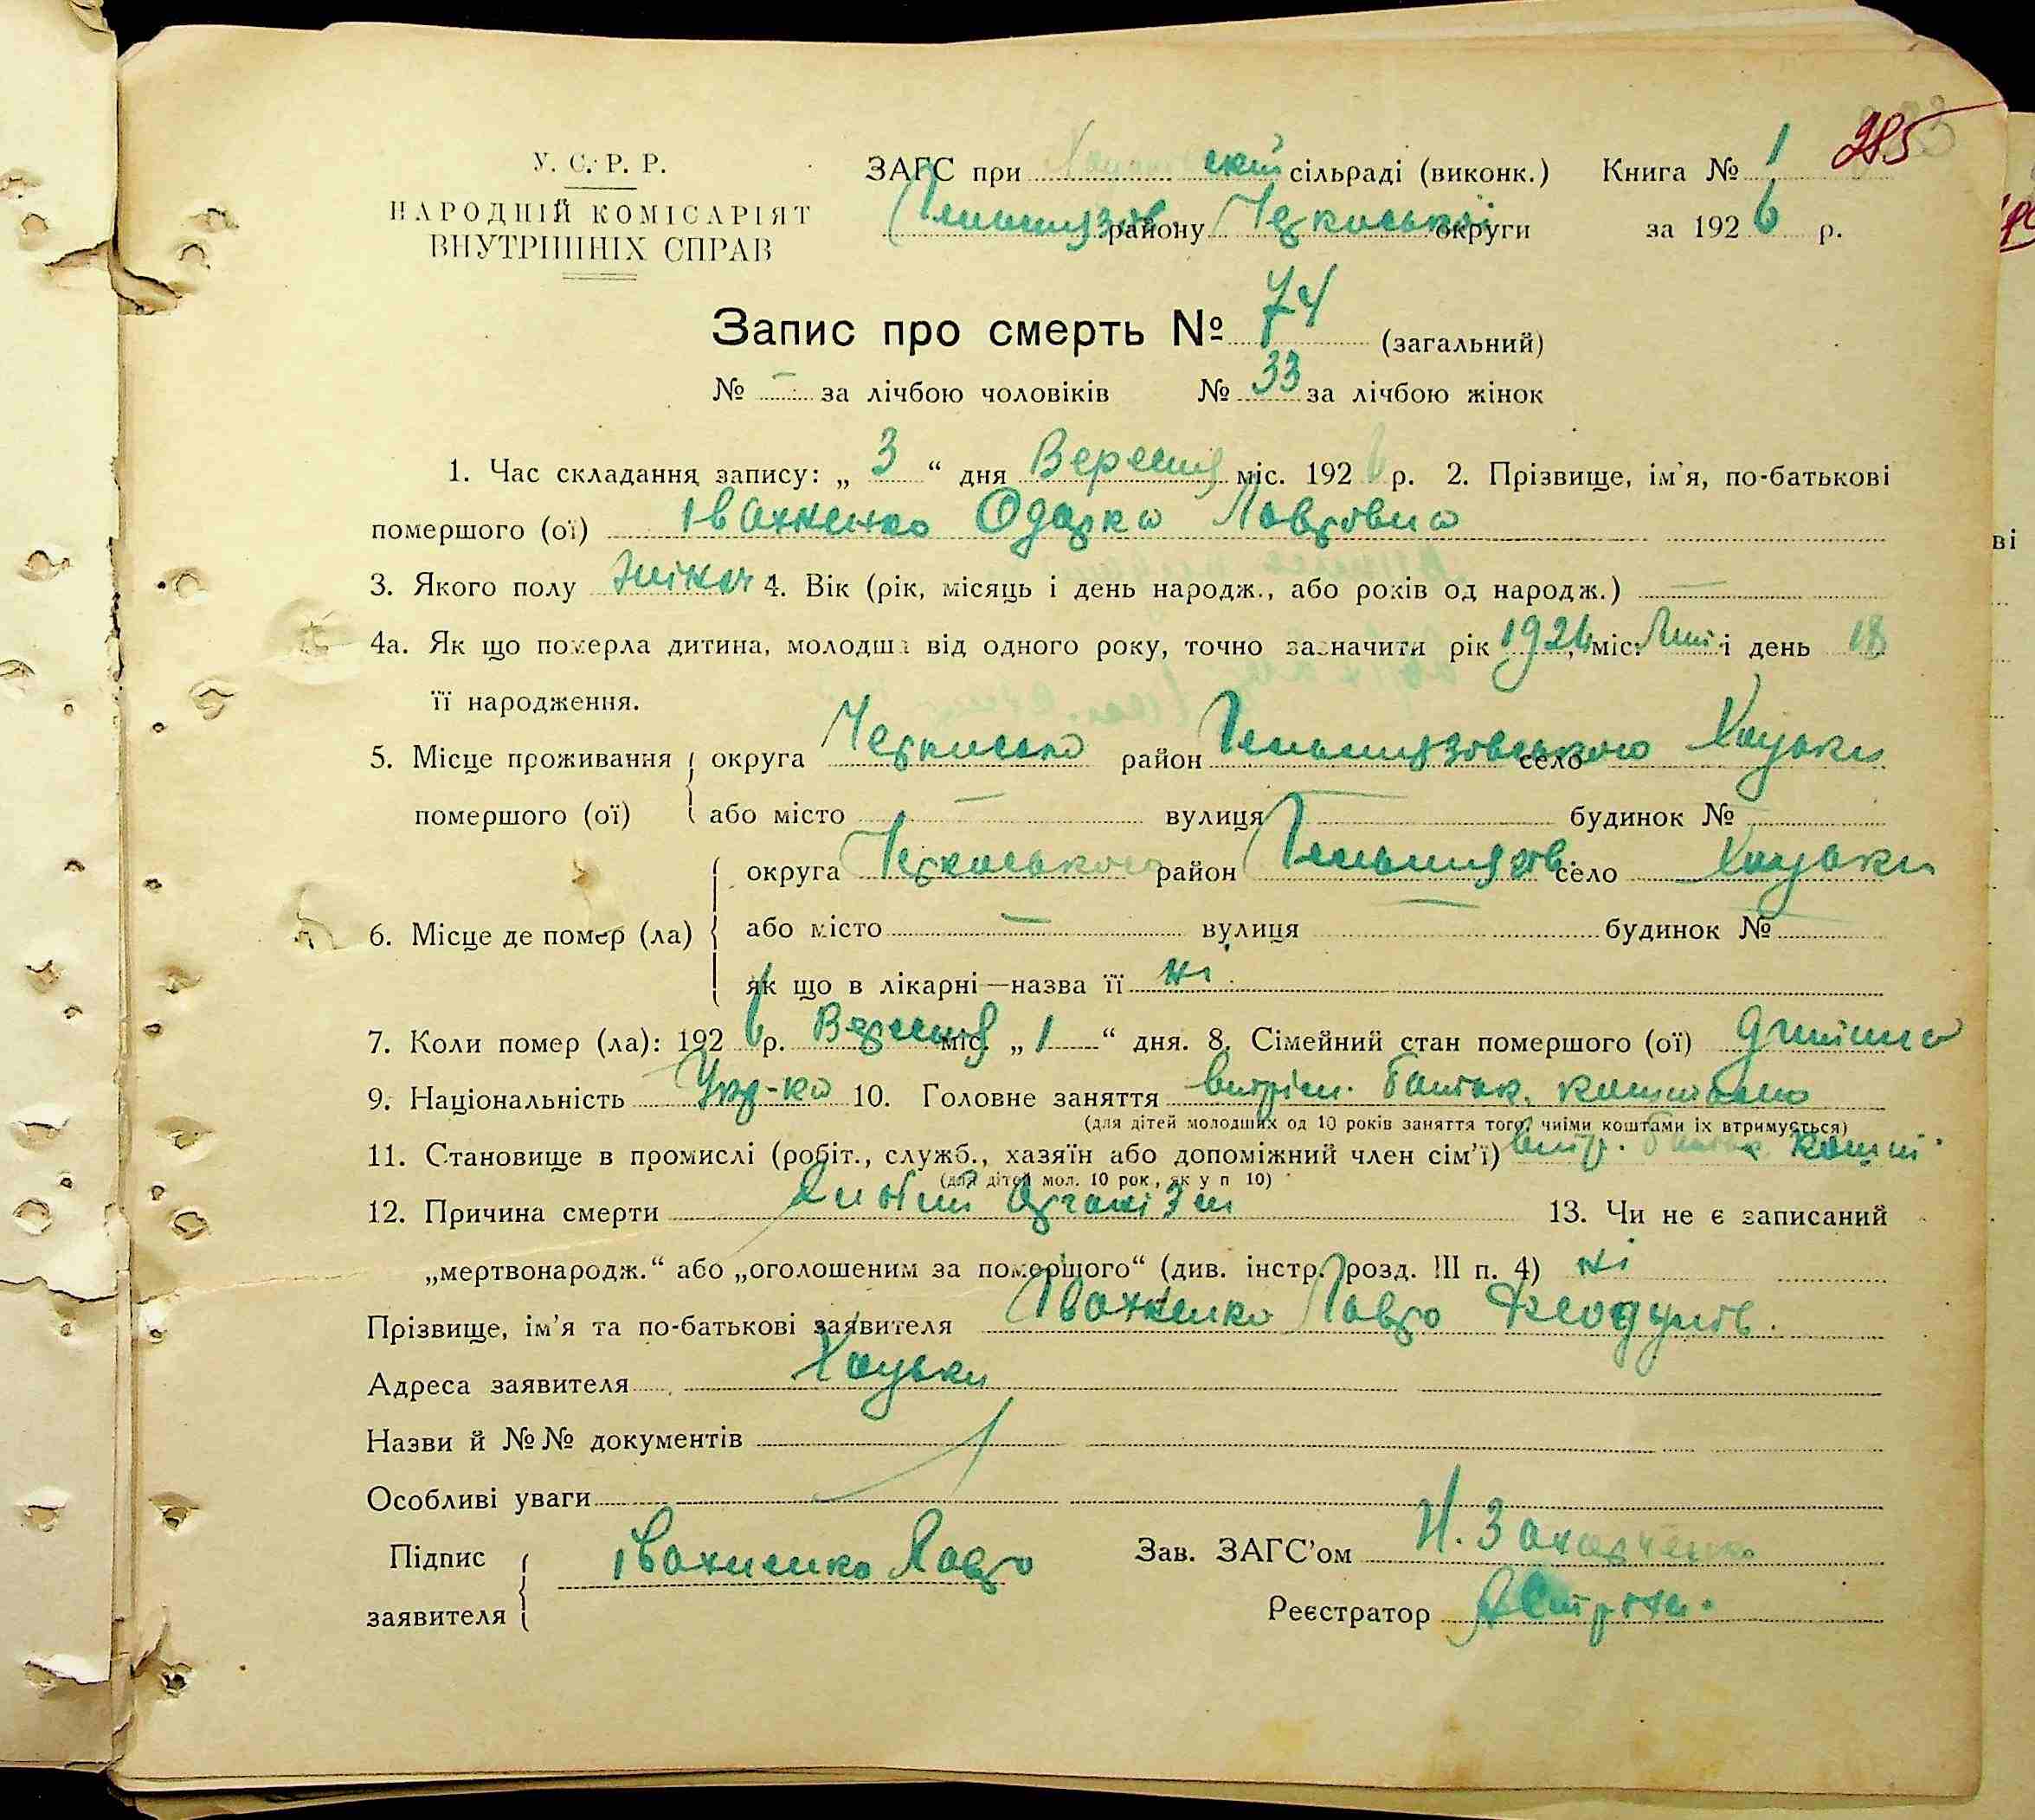 У. С. Р. Р.
НАРОДНІЙ КОМІСАРІЯТ
ВНУТРІШНІХ СПРАВ
ЗАГС при ській сільраді (виконк.) Книга № 1 285
району Черкаської округи за 1926 р.
Запис про смерть № 74 (загальний)
№ — за лічбою чоловіків № 33 за лічбою жінок
1. Час складання запису: „ 3 “ дня Вересня міс. 1926 р. 2. Прізвище, ім'я, по-батькові
помершого (ої) Івахненко Одарка Лавровна
3. Якого полу жіноч 4. Вік (рік, місяць і день народж., або років од народж.) —
4а. Як що померла дитина, молодша від одного року, точно зазначити рік 1926, міс. Лип. і день 18
її народження.
5. Місце проживання округа Черкаська район село Хацьки
помершого (ої) або місто — вулиця — будинок № —
округа Черкаського район село Хацьки
6. Місце де помер (ла) або місто — вулиця — будинок № —
як що в лікарні—назва її ні
7. Коли помер (ла): 1926 р. Вересня міс. „ 1 “ дня. 8. Сімейний стан помершого (ої) дитина
9. Національність Укр-ка 10. Головне заняття батьк. коштами
(для дітей молодших од 10 років заняття того, чиїми коштами їх втримується)
11. Становище в промислі (робіт., служб., хазяїн або допоміжний член сім'ї) утр. батьк. кошт.
(для дітей мол. 10 рок., як у п 10)
12. Причина смерти організм 13. Чи не є записаний
„мертвонародж.“ або „оголошеним за помершого“ (див. інстр. розд. III п. 4) ні
Прізвище, ім'я та по-батькові заявителя Івахненко Лавро
Адреса заявителя Хацьки
Назви й №№ документів
Особливі уваги
Підпис Івахненко Лавро Зав. ЗАГС'ом Н. Захарченко
заявителя Реєстратор